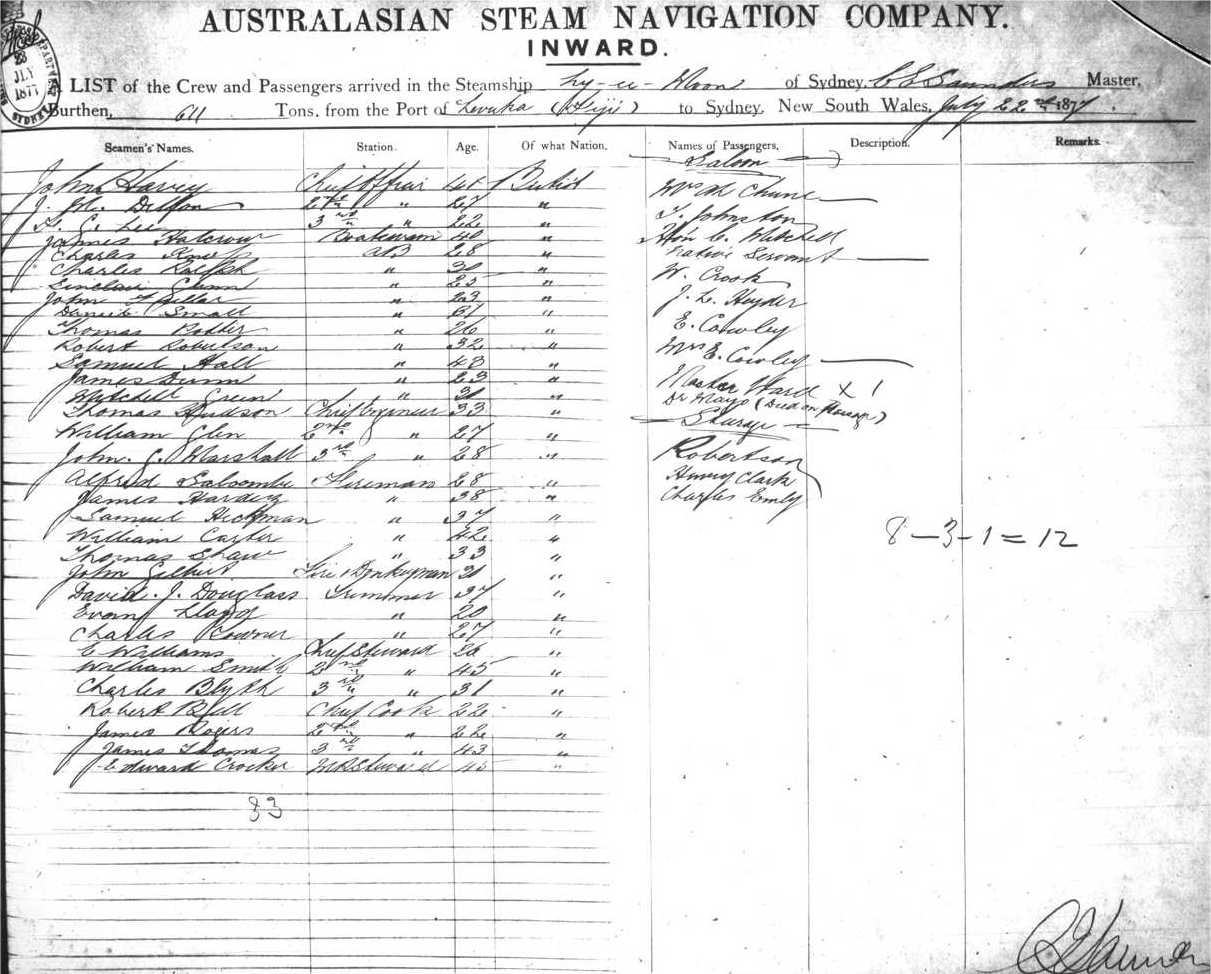 AUSTRALASIAN STEAM NAVIGATION COMPANY.
INWARD.
23
JLY
1877
SYDNEY
A LIST of the Crew and Passengers arrived in the Steamship Ly-ee-Moon of Sydney, Master,
Burthen, 611 Tons, from the Port of Levuka (Fiji) to Sydney, New South Wales, July 22nd 1877.
Seamen's Names. Station. Age. Of what Nation. Names of Passengers, Description. Remarks.
Saloon
John Harvey Chief Officer 41 British
J. Dillon 2nd " 27 "
Lee 3rd " 22 "
James Halcrow Boatswain 40 "
Charles AB 28 "
Charles Ralph " 30 "
Sinclair Gunn " 25 "
John " 23 "
Daniel Small " 31 "
Thomas " 26 "
Robert Robertson " 32 "
Samuel Hall " 43 "
James Dunn " 23 "
Mitchell Green " 30 "
Thomas Hudson Chief Engineer 33 "
William Glen 2nd " 27 "
John G. Marshall 3rd " 28 "
Alfred Fireman 28 "
James Harvey " 38 "
Samuel Heckman " 37 "
William Carter " 42 "
Thomas Shaw " 33 "
John Gilbert Fire & Donkeyman 30 "
David. J. Douglass Trimmer 37 "
Evan Lloyd " 20 "
Charles " 27 "
E Williams Chief Steward 26 "
William Smith 2nd " 45 "
Charles Blyth 3rd " 31 "
Robert Bell Chief Cook 22 "
James Rogers 2nd " 22 "
James Thomas 3rd " 43 "
Edward Crocker Steward 45 "
33
Mrs
T. Johnston
Hon C. Mitchell
Native Servant
W. Crook
J. L.
E. Cowley
Mrs E. Cowley
Master Ward x 1
Dr Mayo (Died on Passage)
Steerage
Robertson
Henry Clark
Charles Emly
8-3-1=12